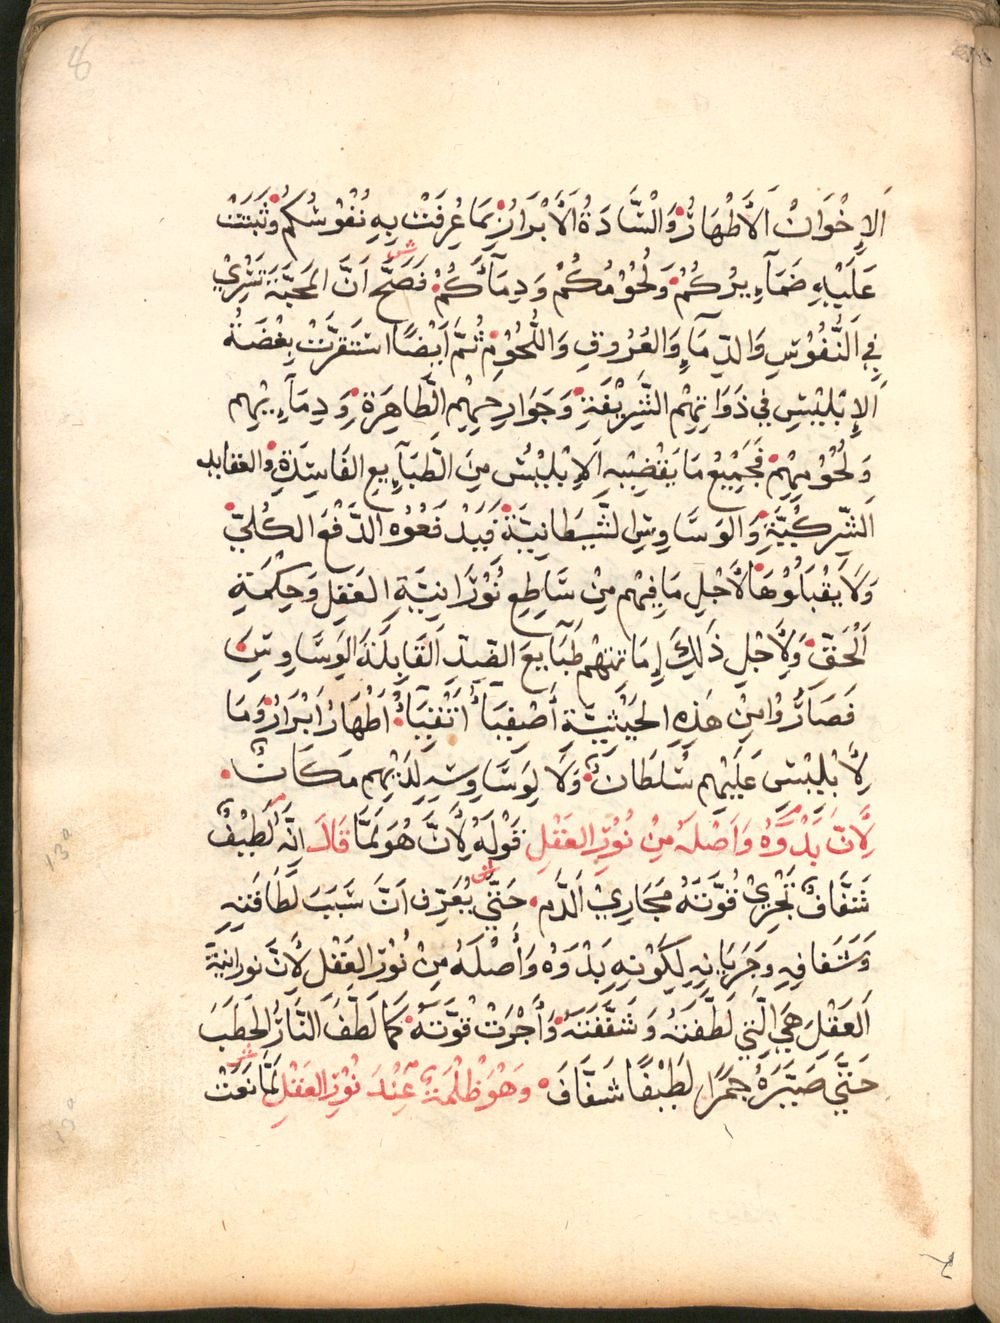 8
اَلإِخْوَانْ اَلأَطْهَارْ وَالْسَّادَةُ اَلأَبْرَارْ بِمَا عُرِفَتْ بِهِ نُفُوْسُكُمْ وَثَبَتَتْ
عَلَيْهِ ضَمَآءِيرُكُمْ وَلُحُوْمُكُمْ وَدِمَآؤُكُمْ ش فَصَحَّ اَنَّ المَحَبَّةَ تَسْرِيْ
فِي اَلنُّفُوْسِ وَالدِّمَآءِ وَالعُرُوقِ وَاللُّحُوْمِ ثُمَّ اَيْضًا اسْتَقَرَّتْ بِغْضَةُ
اَلإِبْلِيْسِ فِي ذَوَاتِهِمْ الشَّرِيْفَةِ وَجَوَارِحِهِم الَّطَاهِرَةِ وَدِمَآءِيهِم
وَلُحُوْمِهِمْ فَجَمِيْعْ مَا يَقْضِيْهِ اَلإِبْلِيْسْ مِنَ الَطَبَآيِعِ الفَاسِدَةِ وَالعَقَايِدِ
الَشِّرْكِيَّةِ وَالوَسَاوِسِ الشَّيْطَانِيَّةَ فَيَدْفَعُوْهُ الدَّفْعَ الكُلِّيّ
وَلاَ يَقْبَلُوْهَا لأَجْلِ مَا فِيْهِم مِنْ سَّاطِعِ نُوْرَانِيَّةِ العَقِلِ وَحِكْمَةِ
اَلْحَقّ وَلأَجْلِ ذَلِكَ إِمَاتَتهُم طَبَايِعَ الضِّدّ القَابِلَةَ الَوسَّاوِسَ
فَصَارُّوْا مِنْ هَذِهِ الحَيْثِيَّة أَصْفِيَآءْ اَتْقِيَآءْ اَطْهَارْ اَبْرَارْ وَمَا
لإِبْلِيْسِ عَلَيْهِم سُلْطَانٌ وَلاَ لِوَسَّاوِسِهِ لَدَيْهِم مَكَانٌ
لأَنَّ بَدْوَّهُ وَاَصْلَهُ مِنْ نُوْرِ العَقْلِ قَوْلَهُ لأَنَّ هُوَ لَمَّا قَالَ اِنَّهُ لَطِيْفٌ
شَفَّافٌ تَجْرِيْ قُوَّتَهُ مَجَارِيْ اَلدَّمِ ش حَتَّىْ يُعَرِّفْ اَنَّ سَبَبَ لَطَافَتِهِ
وَشَفَافِهِ وَجَرَيَانِهِ لِكَوْنِهِ بَدْوَهُ وَأَصْلَهُ مِنْ نُوْرِ العَقْلِ لأَنَّ نورانيّة
اَلعَقْلَ هِيَ الَّتِي لَطَّفَتْهُ وَشَفَّفَتْهُ وَأَجْرَتْ قُوَّتَهُ كَمَا لَطَّفَ النَّارُ الحَطَبَ
حَتَّى صَيَّرَهُ جَمْرًا لَطِيْفًا شَفَّافَ وَهُوَ ظُلْمَةٌ عِنْدَ نُوْرِ العَقْلِ ش لَمَّا نَعَتْ